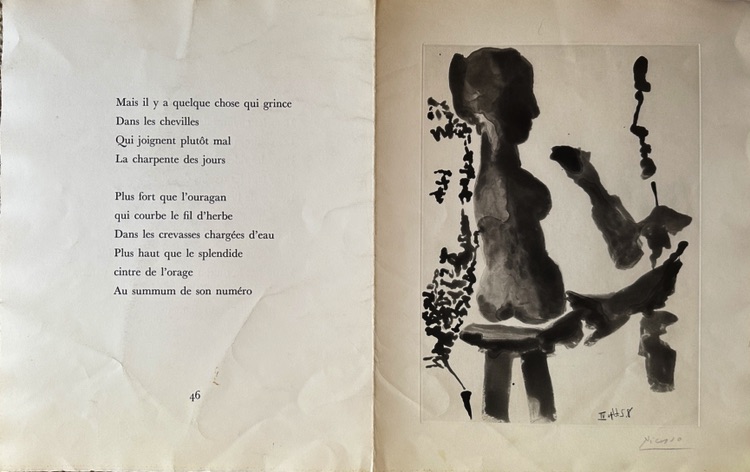 Mais il y a quelque chose qui grince
Dans les chevilles
Qui joignent plutôt mal
La charpente des jours
Plus fort que l'ouragan
qui courbe le fil d'herbe
Dans les crevasses chargées d'eau
Plus haut que le splendide
cintre de l'orage
Au summum de son numéro
46
Picasso